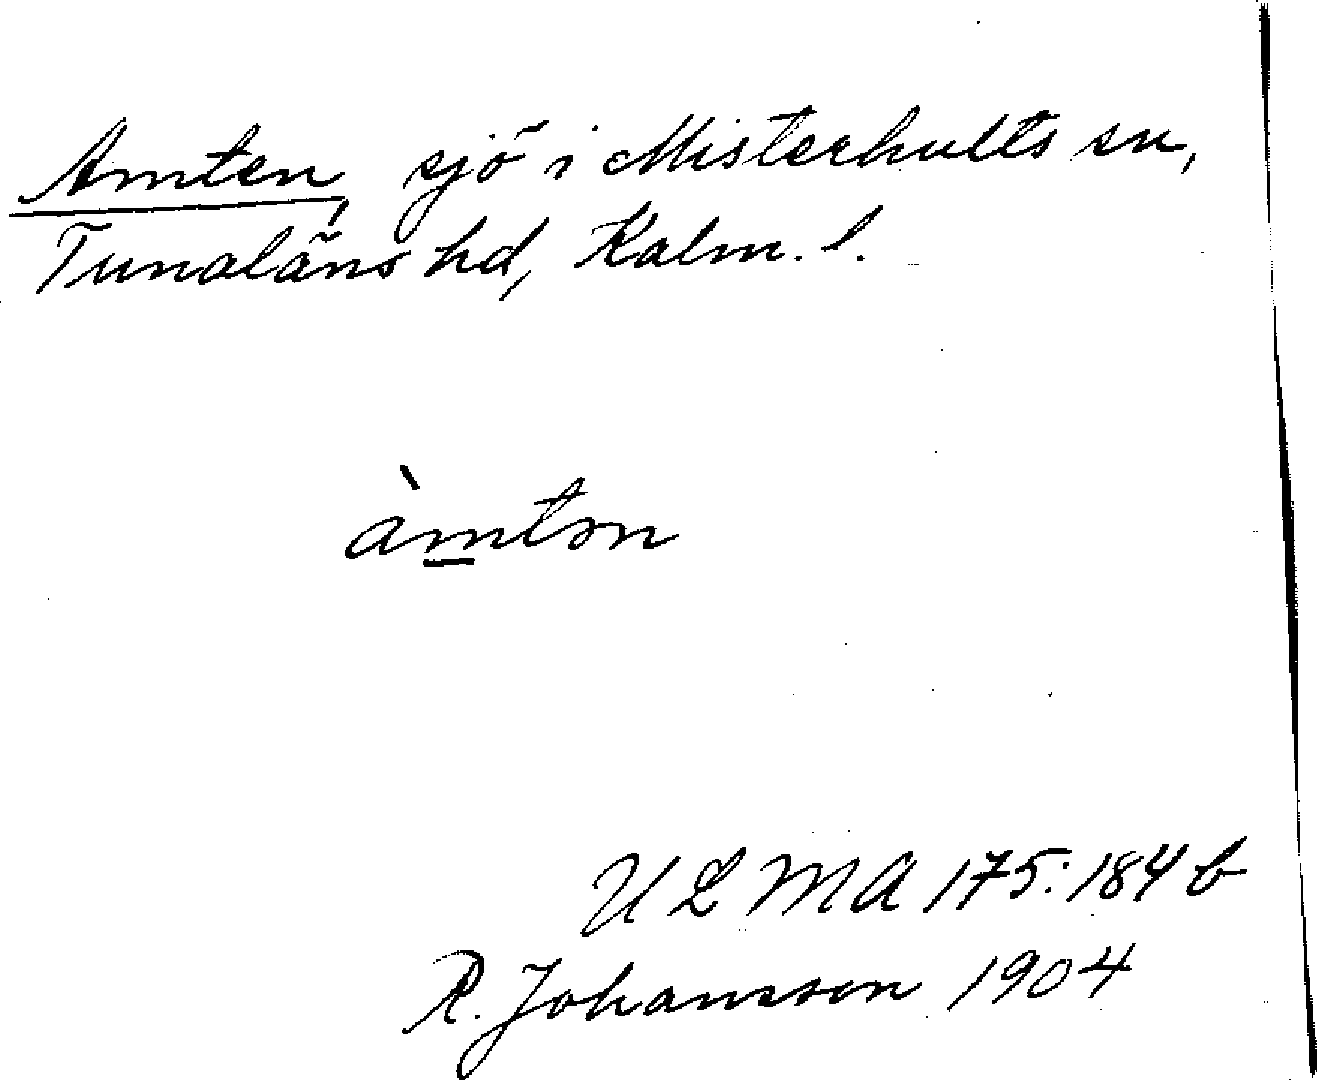 Amten, sjö i Misterhults sn,
Tunaläns hd, Kalm. l.
àmtən
ULMA 175:184 b
R. Johansson 1904